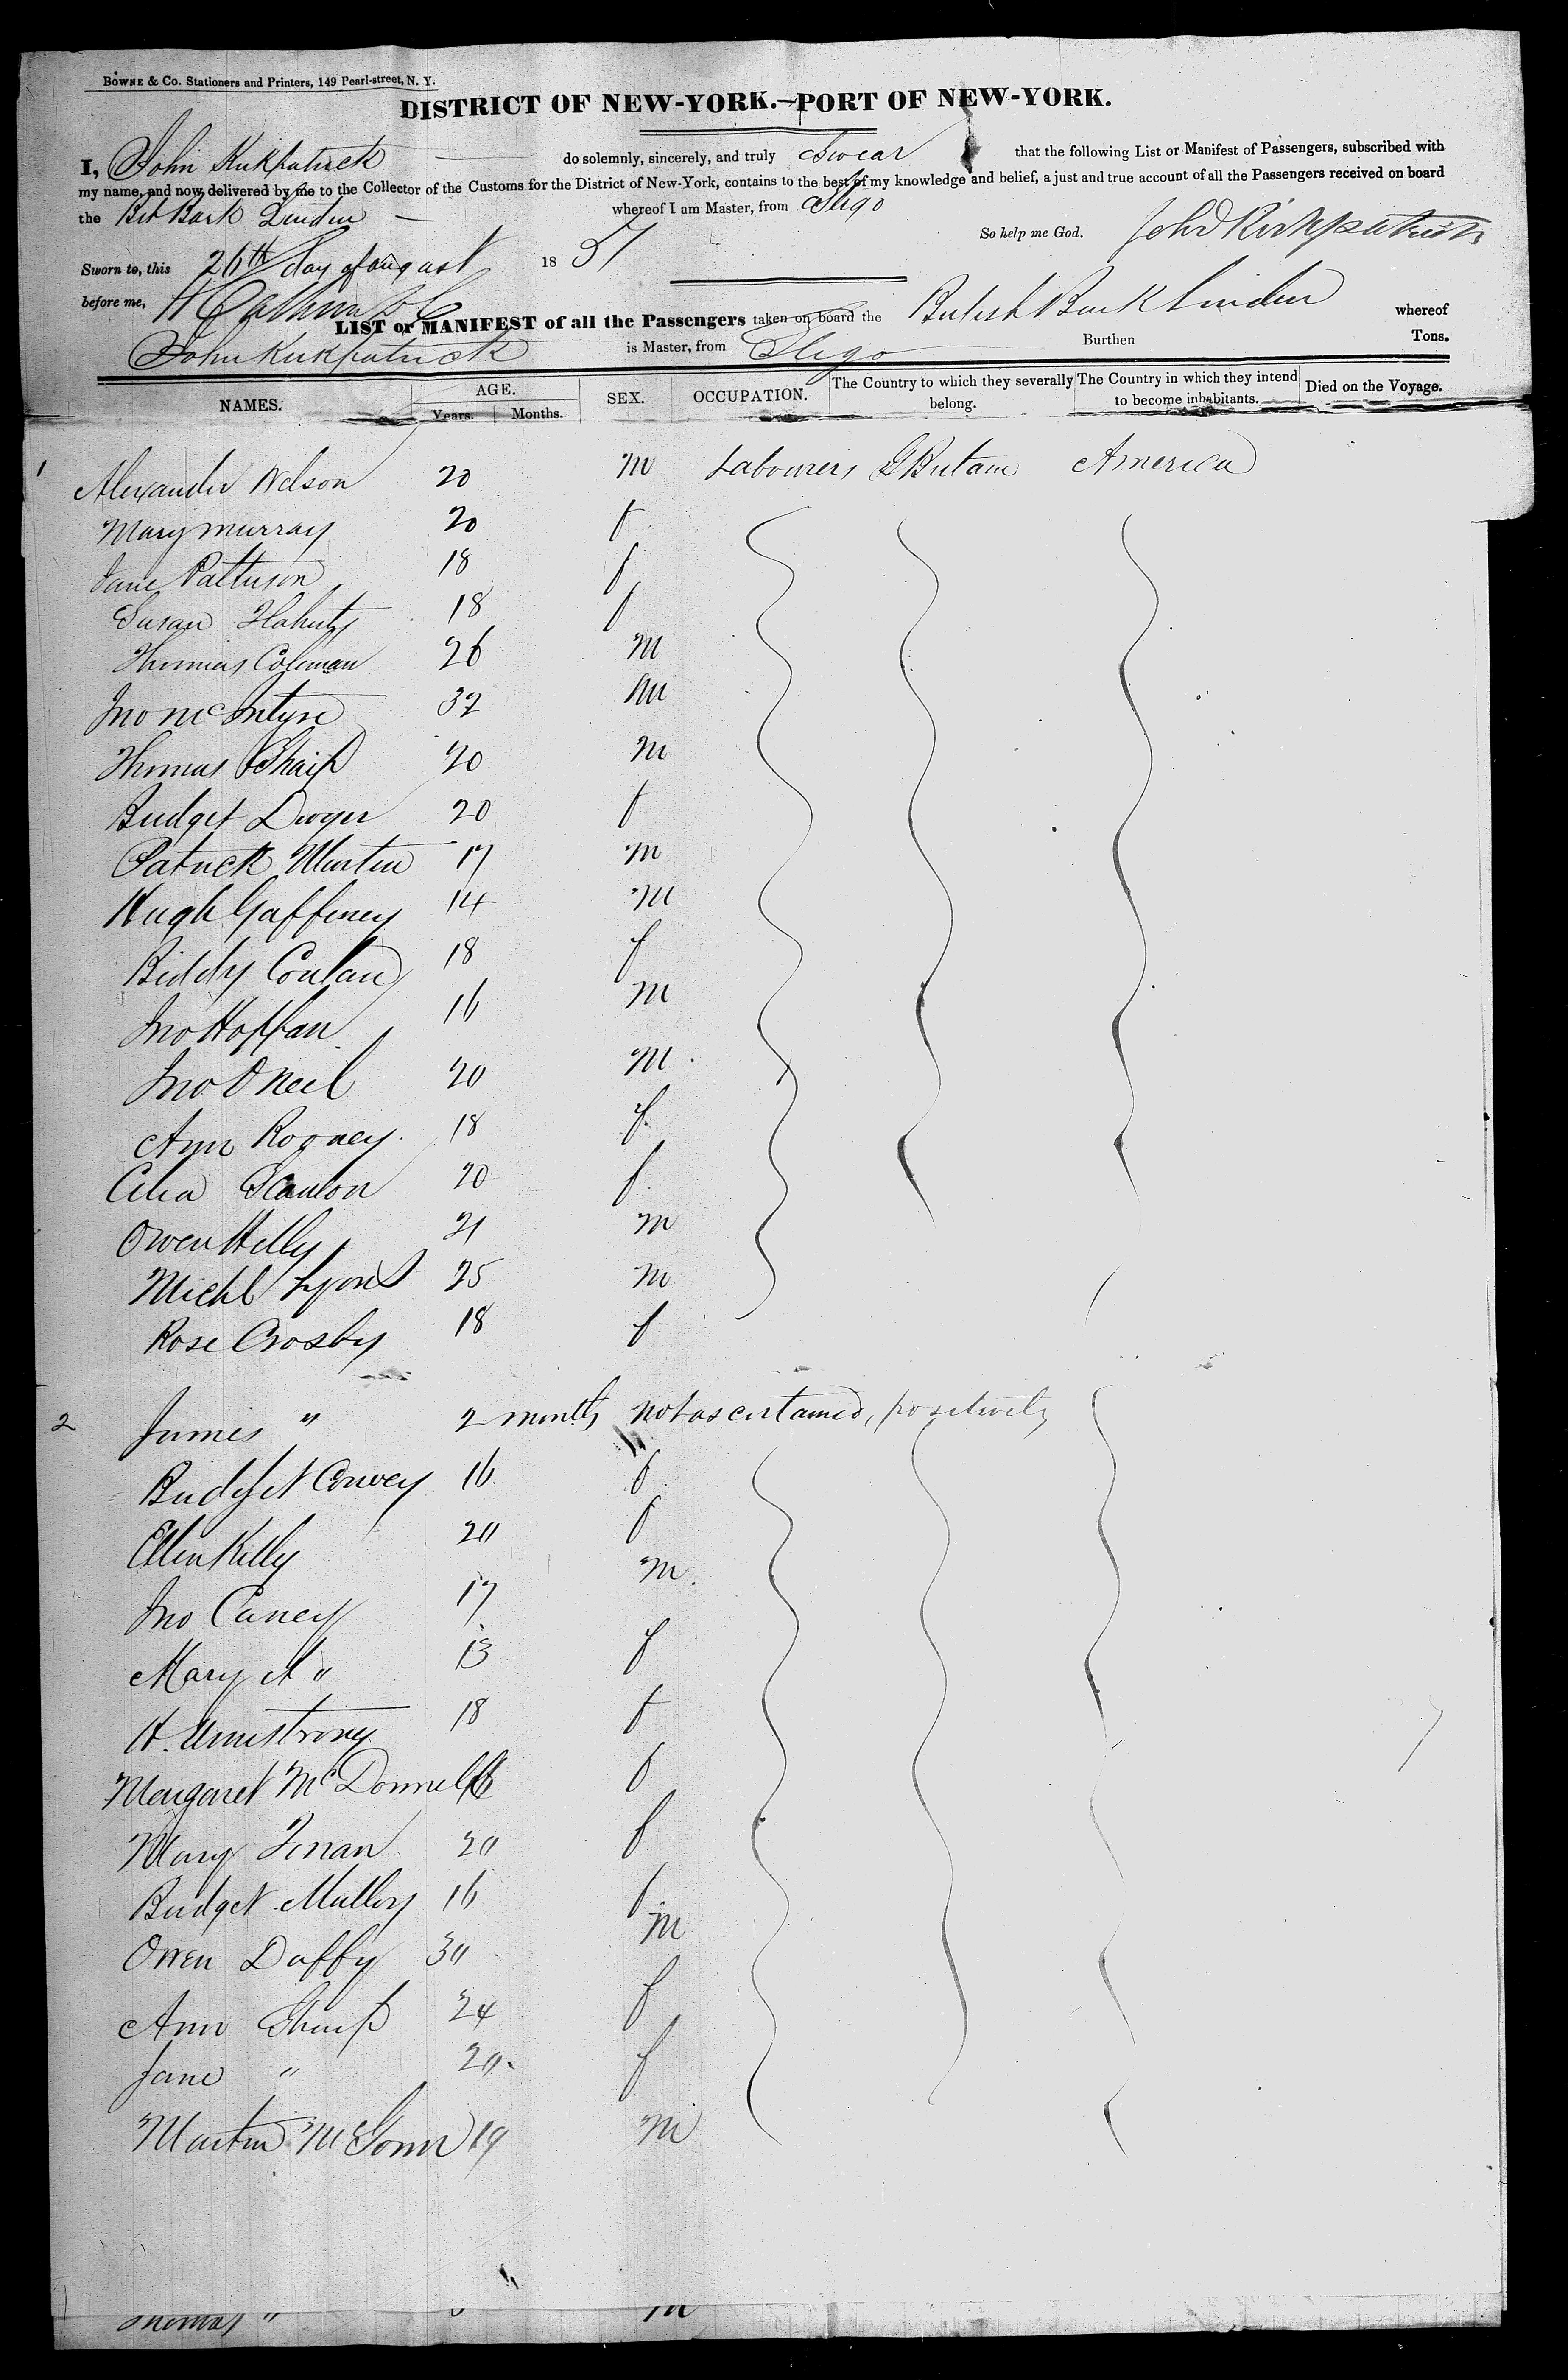 BOWNE & Co. Stationers and Printers, 149 Pearl-street, N. Y.
DISTRICT OF NEW-YORK.—PORT OF NEW-YORK.
I, John Kirkpatrick do solemnly, sincerely, and truly Swear that the following List or Manifest of Passengers, subscribed with
my name, and now delivered by me to the Collector of the Customs for the District of New-York, contains to the best of my knowledge and belief, a just and true account of all the Passengers received on board
the Bark Linden whereof I am Master, from Sligo
So help me God. John Kirkpatrick
Sworn to, this 26th day of August 1851
before me,
LIST or MANIFEST of all the Passengers taken on board the British Bark Linden whereof
John Kirkpatrick is Master, from Sligo Burthen Tons.
NAMES. AGE. Years. Months. SEX. OCCUPATION. The Country to which they severally belong. The Country in which they intend to become inhabitants. Died on the Voyage.
1 Alexander Nelson 20 M Labourers G Britain America
Mary Murray 20 f
Jane Patterson 18 f
Susan Flaherty 18 f
Thomas Coleman 26 M
Jno McIntyre 32 M
Thomas Sharp 20 M
Bridget Dwyer 20 f
Patrick Martin 17 M
Hugh Gaffeney 14 M
Biddy Conlan 18 f
Jno 16 M
Jno O Neil 20 M
Ann Rooney 18 f
Celia Scanlon 20 f
Owen 21 M
Michl Lyons 25 M
Rose Crosby 18 f
2 James " 2 months not ascertained, positively
Bridget Convey 16 f
Ellen Kelly 20 f
Jno Caney 17 M
Mary A " 13 f
H. Armstrong 18 f
Margaret McDonnell 16 f
Mary Finan 20 f
Bridget Mulloy 16 f
Owen Duffy 30 M
Ann Sharp 24 f
Jane " 20 f
Martin McGowan 19 M
Thomas " M